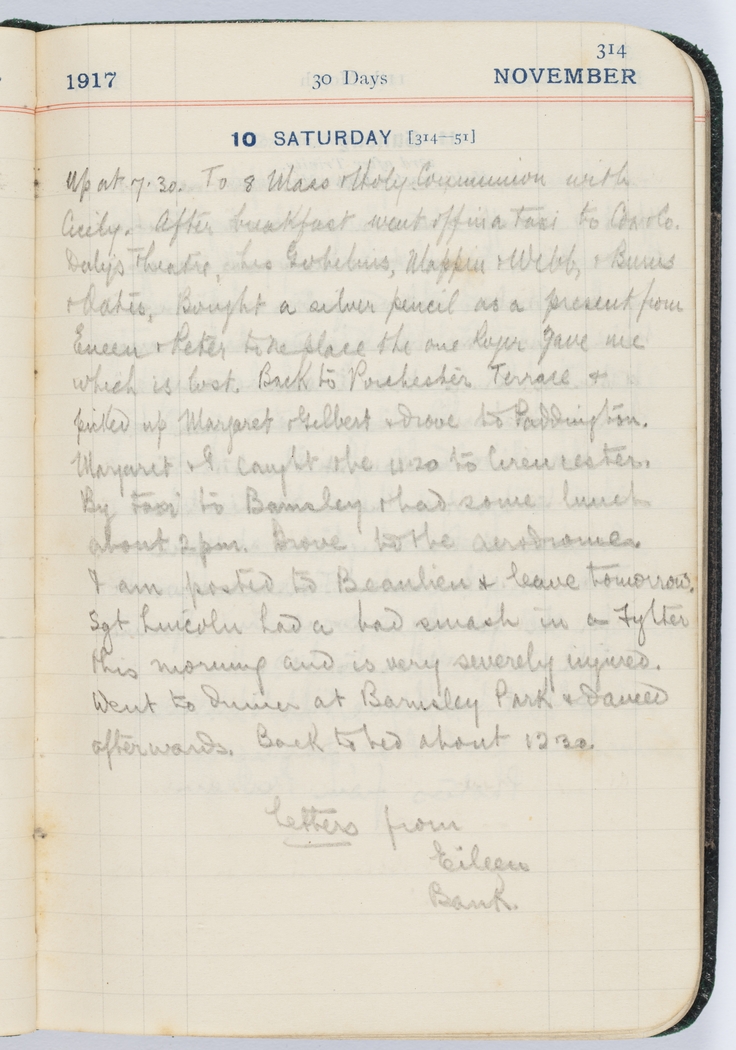 314
1917 30 Days NOVEMBER
10 SATURDAY [314—51]
Up at 7.30. To 8 Mass & Holy Communion with
Cicely. After breakfast went off in a taxi to
Daly's Theatre, Leo Mappin & Webb, & Burns
& Oates, Bought a silver pencil as a present from
Eileen & Peter to replace the one Roger gave me
which is lost. Back to Porchester Terrace &
picked up Margaret & Gilbert & drove to Paddington.
Margaret & I caught the 11.20 to Cirencester.
By taxi to Barnsley & had some lunch
about 2 pm. Drove to the aerodrome.
I am posted to Beaulieu & leave tomorrow.
Sgt Lincoln had a bad smash in a
this morning and is very severely injured.
Went to dinner at Barnsley Park & danced
afterwards. Back to bed about 12 30.
Letters from
Eileen
Bank.